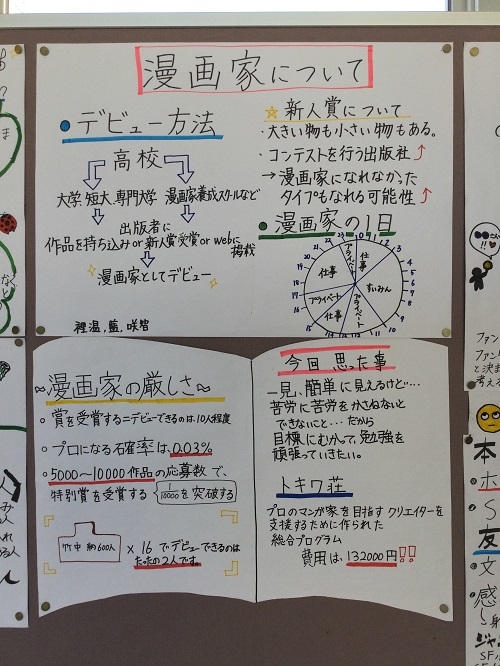 漫画家について
●デビュー方法
高校
大学,短大,専門大学 漫画家養成スクールなど
出版者に
作品を持ち込み or 新人賞受賞 or webに
掲載
漫画家としてデビュー
裡温,藍,咲智
☆新人賞について
・大きい物も小さい物もある。
・コンテストを行う出版社↑
→漫画家になれなかった
タイプもなれる可能性↑
●漫画家の1日
プライベート
仕事
すいみん
プライベート
仕事
プライベート
仕事
漫画家の厳しさ
・賞を受賞する=デビューできるのは10人程度
・プロになる確率は0.03%
・5000〜10000作品の応募数で、
特別賞を受賞する 1/10000を突破する
竹中 約600人 × 16 でデビューできるのは
たったの2人です。
今回思った事
一見、簡単に見えるけど…
苦労に苦労をかさねないと
できないこと…だから
目標にむかって、勉強を
頑張っていきたい。
トキワ荘
プロのマンガ家を目指すクリエイターを
支援するために作られた
総合プログラム
費用は、132000円!!
ファン
ファン
と決ま
考え
本
ホ
S
友
文
感
ジャン
SF